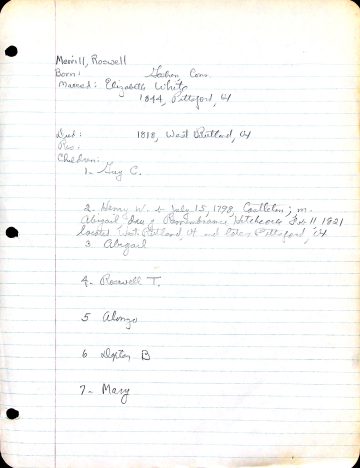 Merrill, Roswell
Born: Conn.
Married: Elizabeth White
Pittsford, Vt
Died: 1818, West Rutland, Vt
Res:
Children:
1. Guy C.
2. Henry W. b July 15, 1798, Castleton; m.
Abigail dau of Remembrance Hitchcock Feb 11 1821
located West Rutland, Vt and later Pittsford, Vt
3 Abigail
4. Roswell T.
5 Alonzo
6 B
7- Mary